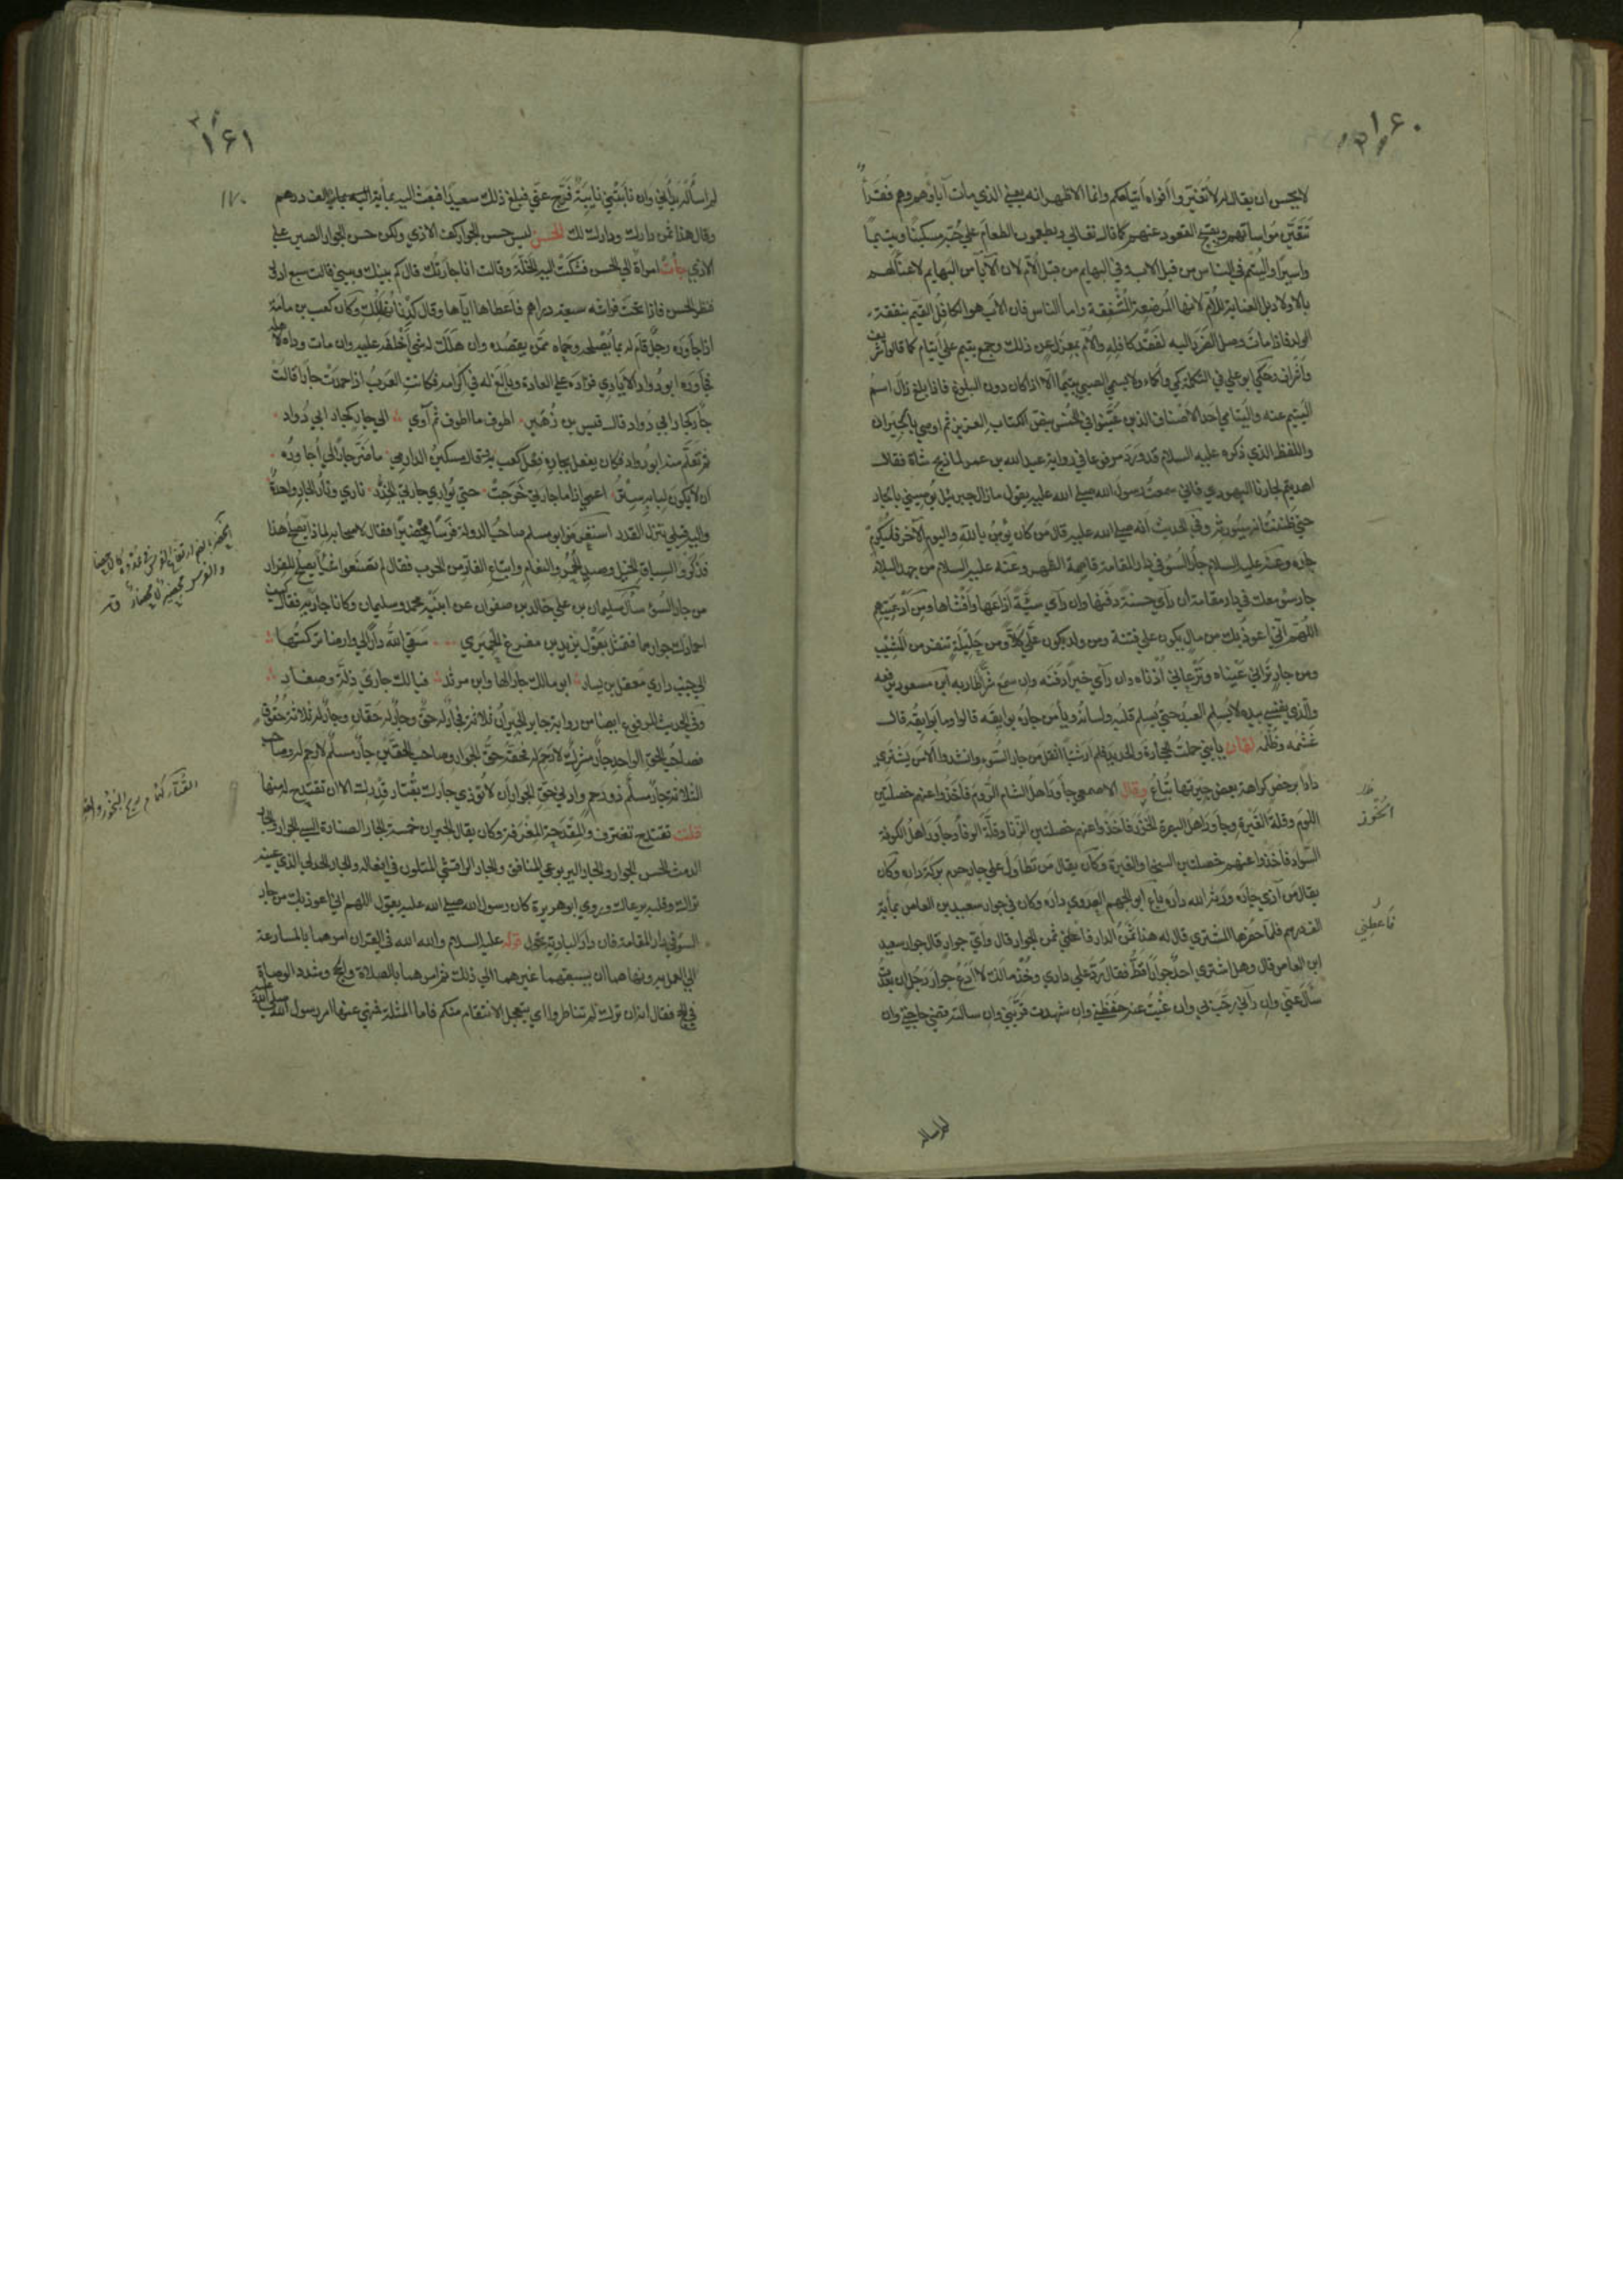 ١٦٠
لا يحسن ان يقال لهم لا تغيروا افواه ايتامكم وانما الاظهر انه يعني الذي مات آباؤهم وهم فقراء
تتعين مواساتهم ويقبح القعود عنهم كما قال تعالى ويطعمون الطعام على حبه مسكينا ويتيما
واسيرا واليتم في الناس من قبل الاب وفي البهايم من قبل الام لان الآباء من البهايم لا عناية لهم
بالاولاد بل العناية للام لانها المرضعة المشفقة واما الناس فان الاب هو الكافل القيم بنفقة
الولد فاذا مات وصل الضرر اليه لفقد كافله والام بمعزل عن ذلك وجمع يتيم على ايتام كما قالوا شريف
واشراف وحكى ابو علي في التكملة كمي واكماء ولا يسمى الصبي يتيما الا اذا كان دون البلوغ فاذا بلغ زال اسم
اليتيم عنه واليتامى احد الاصناف الذين عينوا في الخمس بنص الكتاب العزيز ثم اوصى بالجيران
واللفظ الذي ذكره عليه السلام قد ورد مرفوعا في رواية عبد الله بن عمر لما ذبح شاة فقال
اهديتم لجارنا اليهودي فاني سمعت رسول الله صلى الله عليه يقول ما زال جبرئيل يوصيني بالجار
حتى ظننت انه سيورثه وفي الحديث انه صلى الله عليه قال من كان يؤمن بالله واليوم الآخر فليكرم
جاره وعنه عليه السلام جار السوء في دار المقامة قاصمة الظهر وعنه عليه السلام من جهد البلاء
جار سوء معك في دار مقامة ان رأى حسنة دفنها وان رأى سيئة اذاعها وافشاها ومن ادعيتهم
اللهم اني اعوذ بك من مال يكون علي فتنة ومن ولد يكون علي كلا ومن حليلة تقرب من المشيب
ومن جار تراني عيناه وترعاني اذناه ان رأى خيرا دفنه وان سمع شرا طار به ابن مسعود يرفعه
والذي نفسي بيده لا يسلم العبد حتى يسلم قلبه ولسانه ويأمن جاره بوايقه قالوا وما بوايقه قال
غشمه وظلمه لقمان يا بني حملت الحجارة والحديد فلم ار شيئا اثقل من جار السوء وانشدوا الا من يشتري
دارا برخص كراهة بعض جيرتها تباع وقال الاصمعي جاور اهل الشام الروم فاخذوا عنهم خصلتين
اللوم وقلة الغيرة وجاور اهل البصرة الخزر فاخذوا عنهم خصلتين الزنا وقلة الوفاء وجاور اهل الكوفة
السواد فاخذوا عنهم خصلتين السخا والغيرة وكان يقال من تطاول على جاره حرم بركة داره وكان
يقال من آذى جاره ورثه الله داره باع ابو الجهم العدوي داره وكان في جوار سعيد بن العاص بمأية
الف درهم فلما احضرها المشتري قال له هذا ثمن الدار فاعطني ثمن الجوار قال واي جوار قال جوار سعيد
ابن العاص قال وهل اشترى احد جوارا قط فقال رد علي داري وخذ مالك لا ادع جوار رجل ان قعدت
سأل عني وان رآني رحب بي وان غبت عنه حفظني وان شهدت قربني وان سالته قضى حاجتي وان
ظ
الخوز
فاعطني
لم اساله
١٦١
١٧٠
لم اساله بدأني وان نابتني نايبة فرج عني فبلغ ذلك سعيدا فبعث اليه بمأية الف درهم
وقال هذا ثمن دارك ودارك لك الحسن ليس حسن الجوار كف الاذى ولكن حسن الجوار الصبر على
الاذى جأت امرأة الى الحسن فشكت اليه الخلة وقالت انا جارتك قال كم بينك وبيني قالت سبع ادؤر
فنظر الحسن فاذا تحت فراشه سبعة دراهم فاعطاها اياها وقال كدنا نهلك وكان كعب بن مامة
اذا جاوره رجل قام له بما يصلحه وحماه ممن يقصده وان هلك له شي اخلفه عليه وان مات وداه لاهله
فجاوره ابو دواد الايادي فزاده على العادة وبالغ له في اكرامه فكانت العرب اذا حمدت جارا قالت
جار كجار ابي دواد قال قيس بن زهير اطوف ما اطوف ثم آوي الى جار كجار ابي دواد
ثم تعلم منه ابو دواد فكان يفعل بجاره فعل كعب به وقال مسكين الدارمي ما ضر جارا لي اجاوره
ان لا يكون لبابه ستر اعمى اذا ما جارتي خرجت حتى يواري جارتي الخدر ناري ونار الجار واحدة
واليه قبلي تنزل القدر استعرض ابو مسلم صاحب الدولة فرسا محضيرا فقال لاصحابه لماذا يصلح هذا
فذكروا السباق وصيد الحمر والنعام واتباع الفار من الحرب فقال لم تصنعوا شيأ يصلح للفرار
من جار السوء سأل سليمان بن علي خالد بن صفوان عن ابنيه محمد وسليمان وكانا جاريه فقال كيف
احمادك جوارهما فتمثل بقول يزيد بن مفرغ الحميري سقى الله دارا لي وارضا تركتها
الى جنب داري معقل بن يسار ابو مالك جار لها وابن مرثد فيا لك جاري ذلة وصغار
وفي الحديث المرفوع ايضا من رواية جابر الجيران ثلاثة فجار له حق وجار له حقان وجار له ثلاثة حقوق
فصاحب الحق الواحد جار مشرك لا رحم له فحقه حق الجوار وصاحب الحقين جار مسلم لا رحم له وصاحب
الثلاثة جار مسلم ذو رحم وادنى حق الجوار ان لا تؤذي جارك بقتار قدرك الا ان تقتدح له منها
قلت تقتدح تغترف والمقدحة المغرفة وكان يقال الجيران خمسة الجار الضار السيئ الجوار والجار
الدمث الحسن الجوار والجار اليربوعي المنافق والجار البراقشي المتلون في افعاله والجار الحسدلي الذي عينه
تراك وقلبه يرعاك وروى ابو هريرة كان رسول الله صلى الله عليه يقول اللهم اني اعوذ بك من جار
السوء في دار المقامة فان دار البادية تتحول قوله عليه السلام والله الله في القرآن امرهما بالمسارعة
الى العمل به ونهاهما ان يسبقهما غيرهما الى ذلك ثم امرهما بالصلاة والحج وشدد الوصاة
في الحج فقال انه ان ترك لم تناظروا اي يتعجل الانتقام منكم فاما المثلة فنهى عنها امر رسول الله صلى الله عليه
القتار كغراب ريح البخور